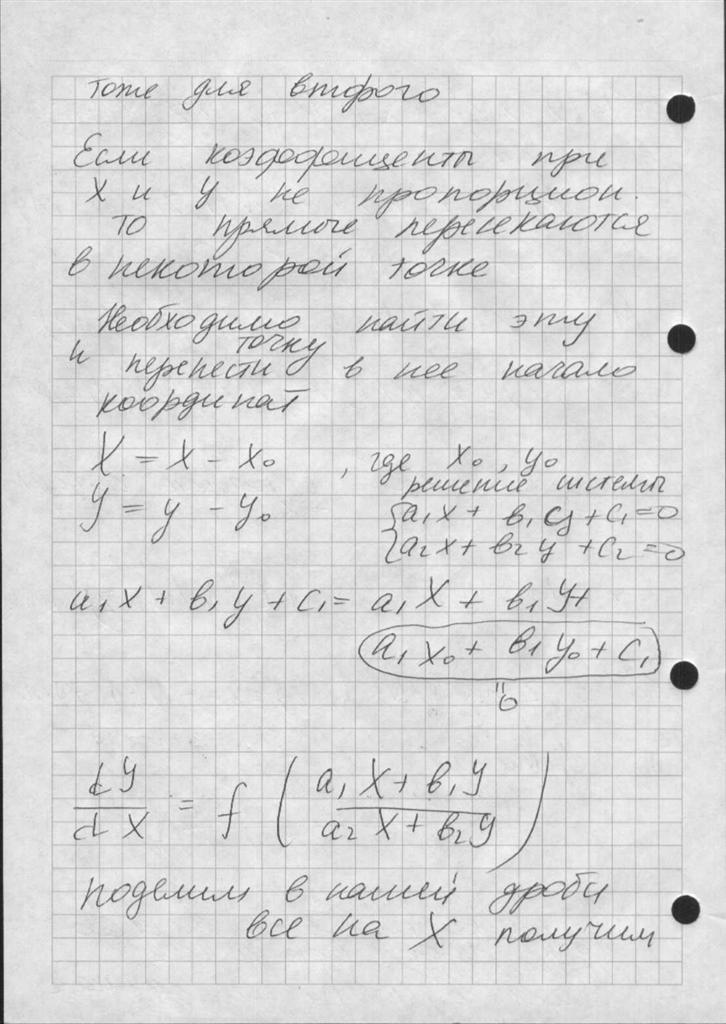 тоже для второго
Если коэффициенты при
X и У не пропорцион.
то прямые пересекаются
в некоторой точке
Необходимо найти эту
точку
и перенести в нее начало
координат
X = x - x₀ , где x₀, y₀
решение системы
Y = y - y₀ {a₁x + в₁y + c₁ = 0
{a₂x + в₂y + c₂ = 0
a₁x + в₁y + c₁ = a₁X + в₁Y +
a₁x₀ + в₁y₀ + c₁
"
0
dY/dX = f ( (a₁X + в₁Y)/(a₂X + в₂Y) )
поделим в нашей дроби
все на X получим